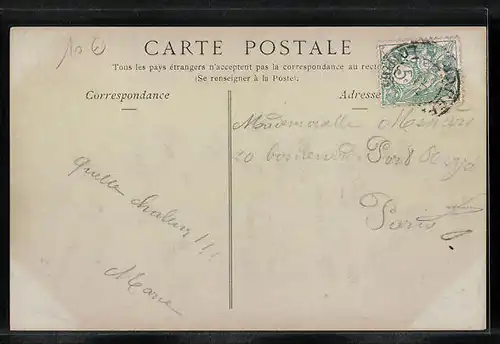 CARTE POSTALE
Tous les pays étrangers n'acceptent pas la correspondance au recto
(Se renseigner à la Poste).
Correspondance
Adresse
Quelle chaleur!!!
Mademoiselle
20 boulevard Port Royal
Paris
5